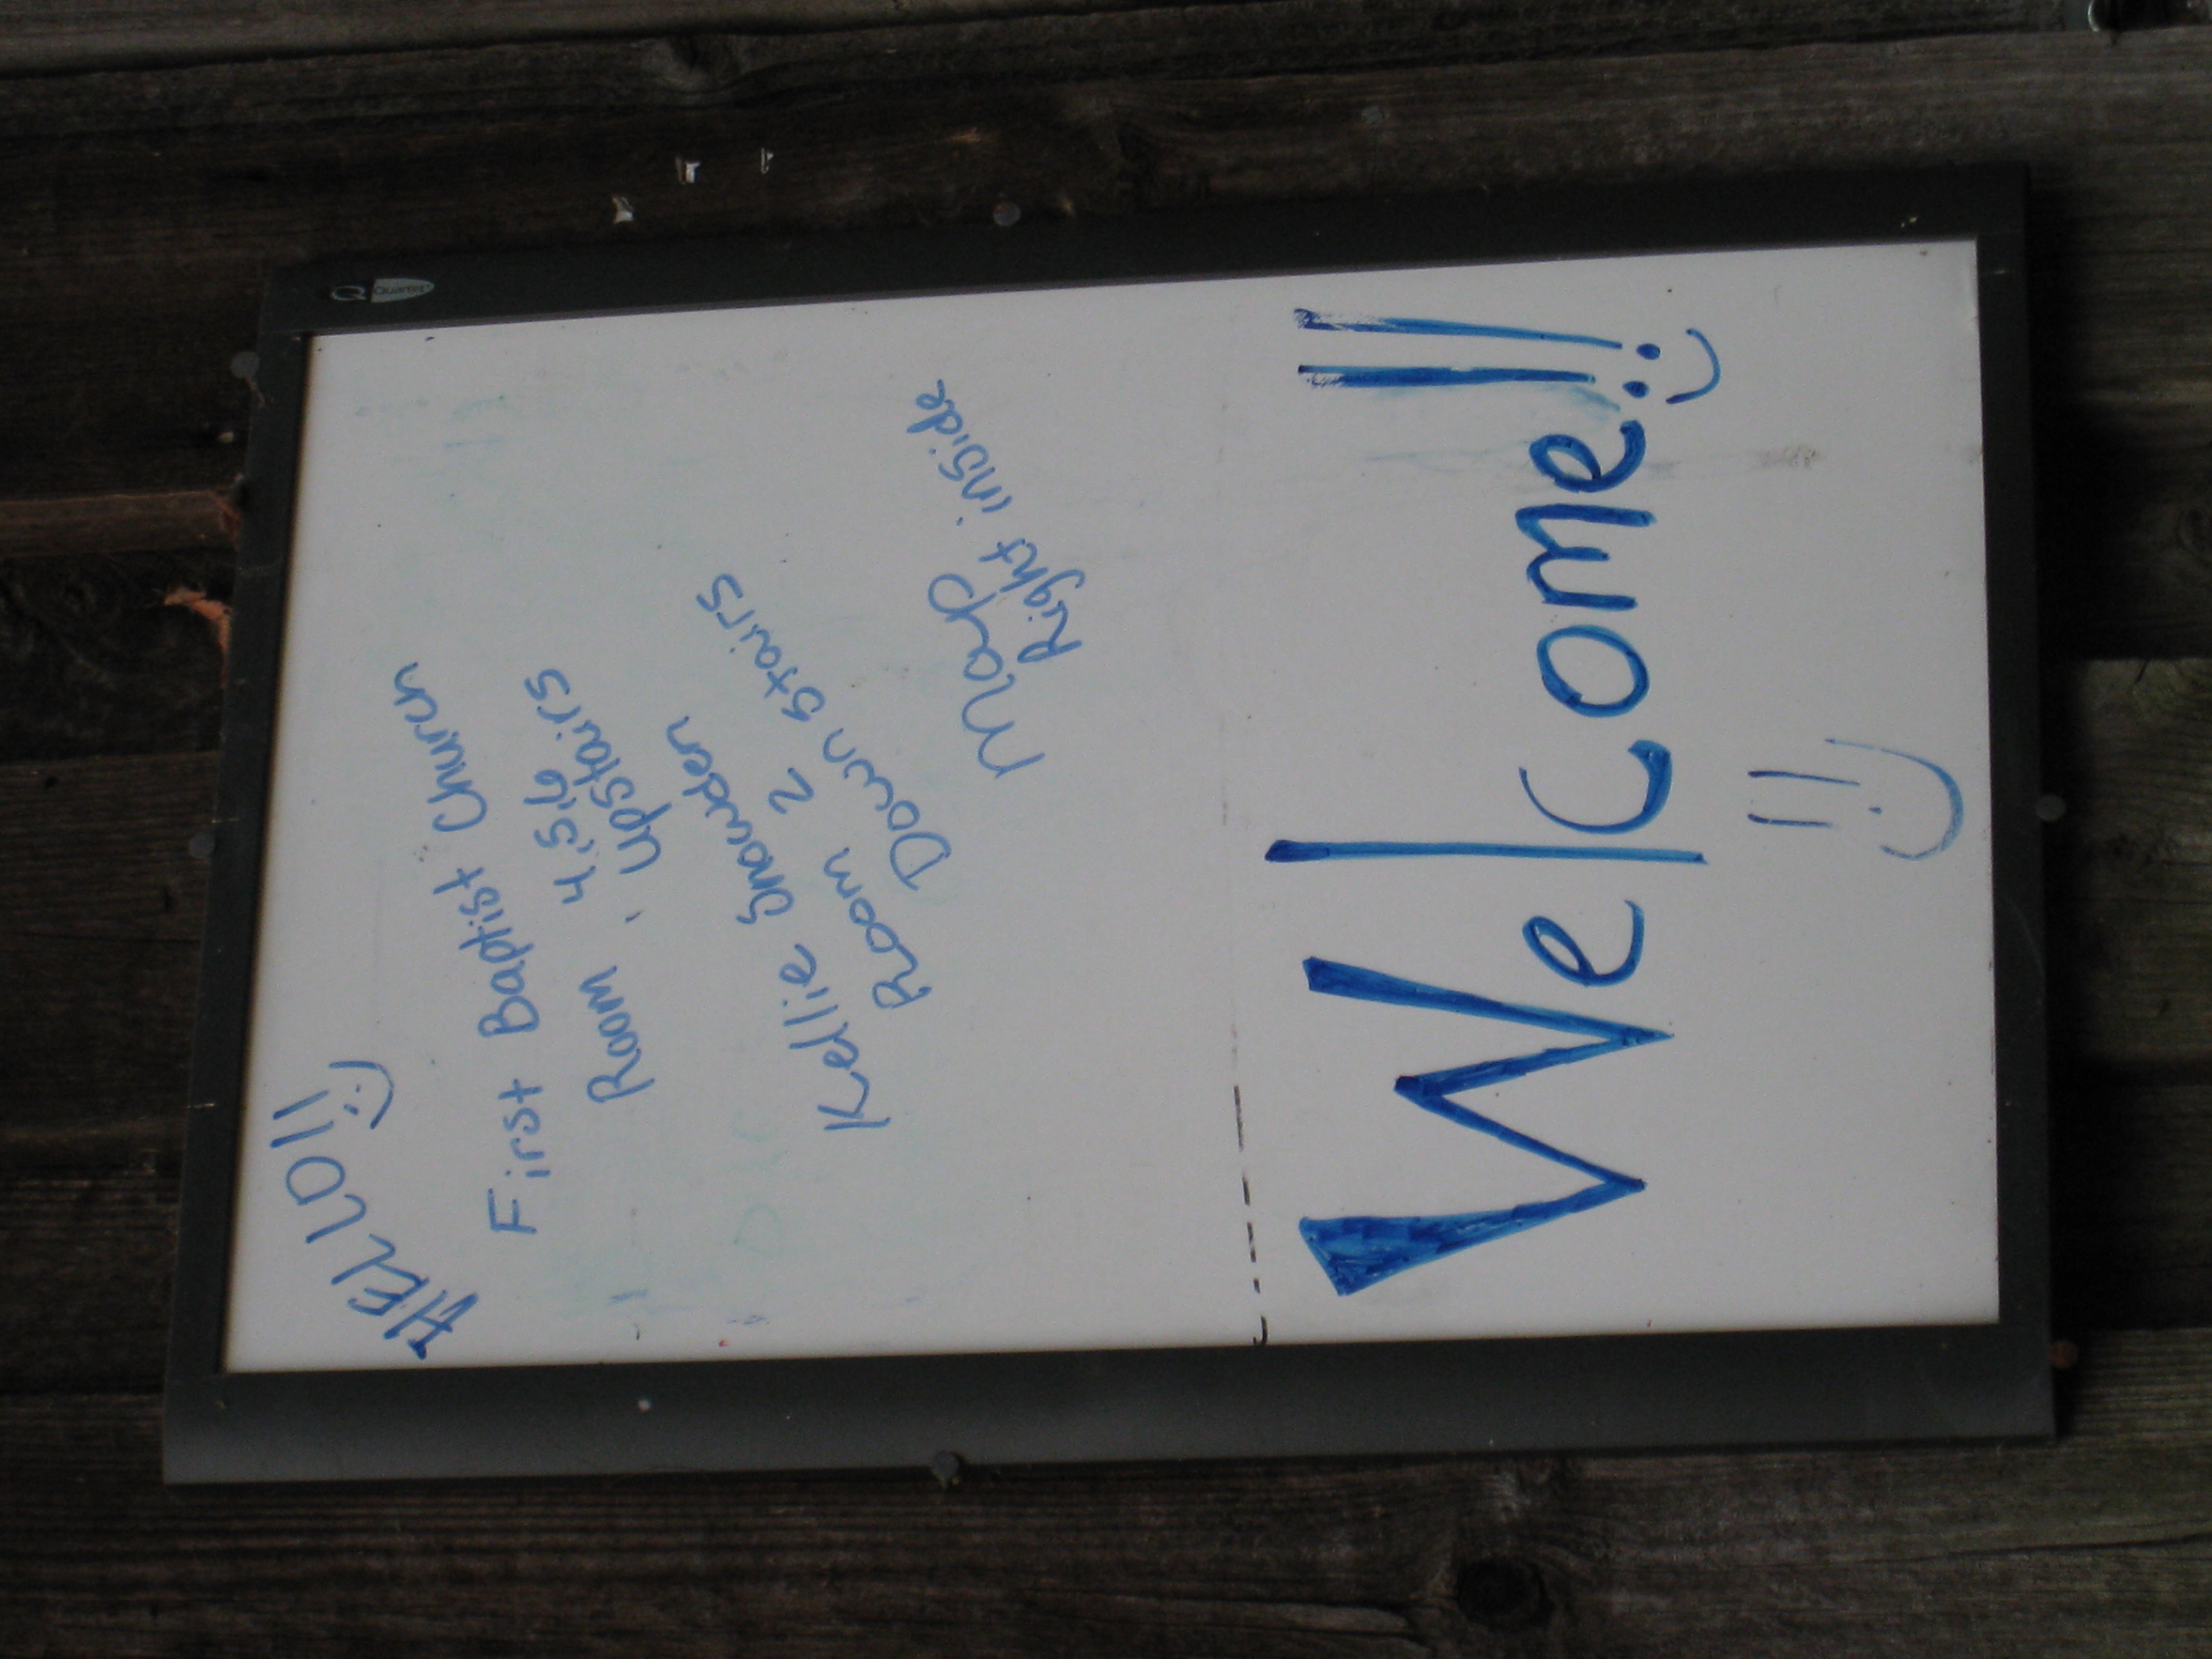 Quartet
HELLO!! :)
First Baptist Church
Room 4,5,6
upstairs
Kellie Snowden
Room 2
Down stairs
Map
Right inside
Welcome!!